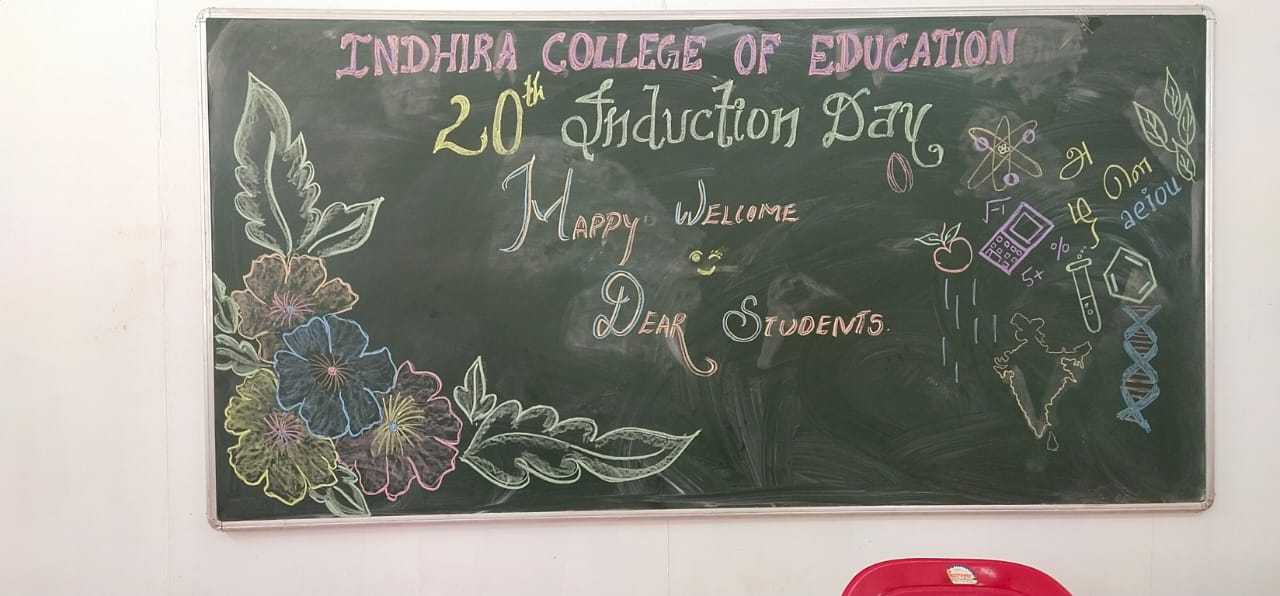 INDHIRA COLLEGE OF EDUCATION
20th Induction Day
HAPPY WELCOME
DEAR STUDENTS.
அ
aeiou
√-1
%
5+